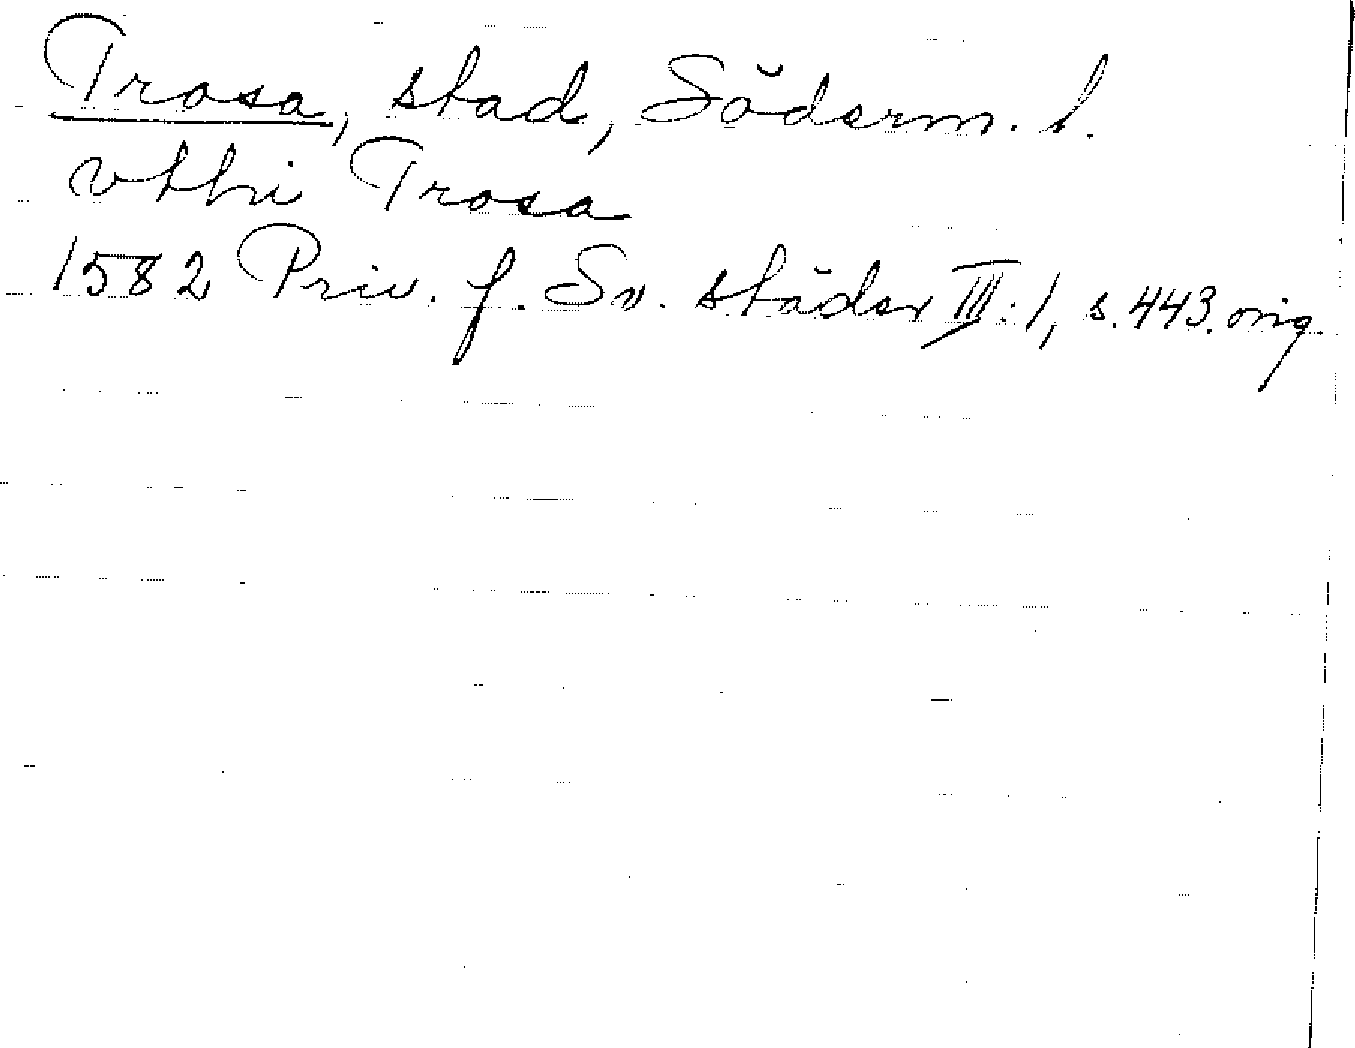 Trosa, stad, Söderm. l.
vthi Trosa
1582 Priv. f. Sv. städer III:1, s. 443. orig